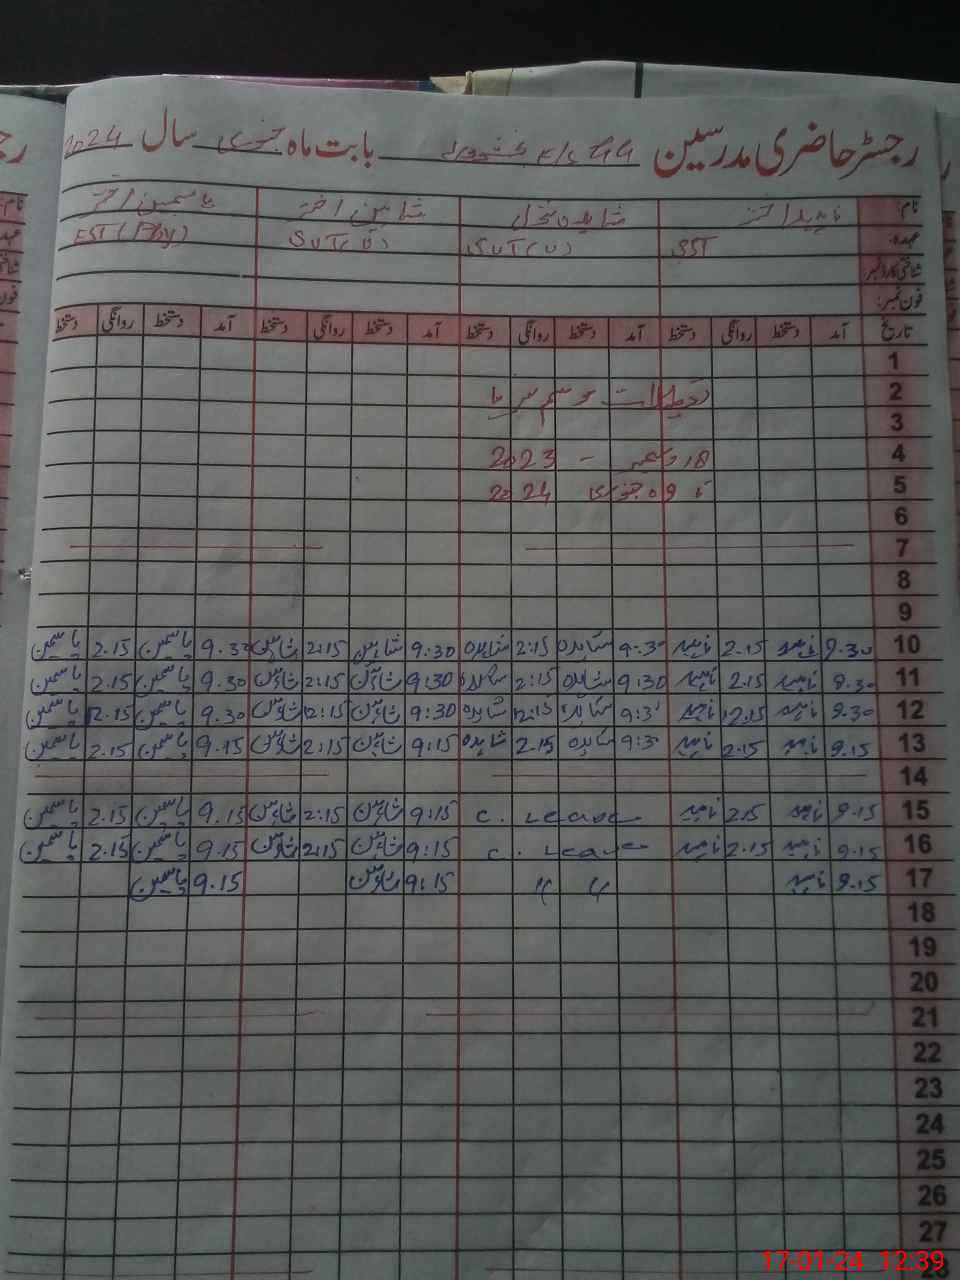 رجسٹر حاضری مدرسین بابت ماہ جنوری سال 2024
نام: ناہید اختر شاہدہ شاہین اختر یاسمین اختر
عہدہ: SST SUT(U) SUT(U) EST(
شناختی کارڈ نمبر
فون نمبر:
تاریخ آمد دستخط روانگی دستخط آمد دستخط روانگی دستخط آمد دستخط روانگی دستخط آمد دستخط روانگی دستخط
1
2 تعطیلات موسم سرما
3
4 18 دسمبر - 2023
5 تا 09 جنوری 2024
6
7
8
9
10 9.30 ناہید 2.15 ناہید 9:30 شاہدہ 2:15 شاہدہ 9:30 شاہین 2:15 شاہین 9.30 یاسمین 2.15 یاسمین
11 9.30 ناہید 2.15 ناہید 9:30 شاہدہ 2:15 شاہدہ 9:30 شاہین 2:15 شاہین 9.30 یاسمین 2.15 یاسمین
12 9.30 ناہید 12.15 ناہید 9:3 شاہدہ 12:15 شاہدہ 9:30 شاہین 12:15 شاہین 9.30 یاسمین 12.15 یاسمین
13 9.15 ناہید 2.15 ناہید 9:3 شاہدہ 2.15 شاہدہ 9:15 شاہین 2:15 شاہین 9.15 یاسمین 2.15 یاسمین
14
15 9.15 ناہید 2.15 ناہید C. Leave 9:15 شاہین 2:15 شاہین 9.15 یاسمین 2.15 یاسمین
16 9.15 ناہید 2.15 ناہید C. Leave 9:15 شاہین 2:15 شاہین 9.15 یاسمین 2.15 یاسمین
17 9.15 ناہید " " 9:15 شاہین 9.15 یاسمین
18
19
20
21
22
23
24
25
26
27
17-01-24 12:39